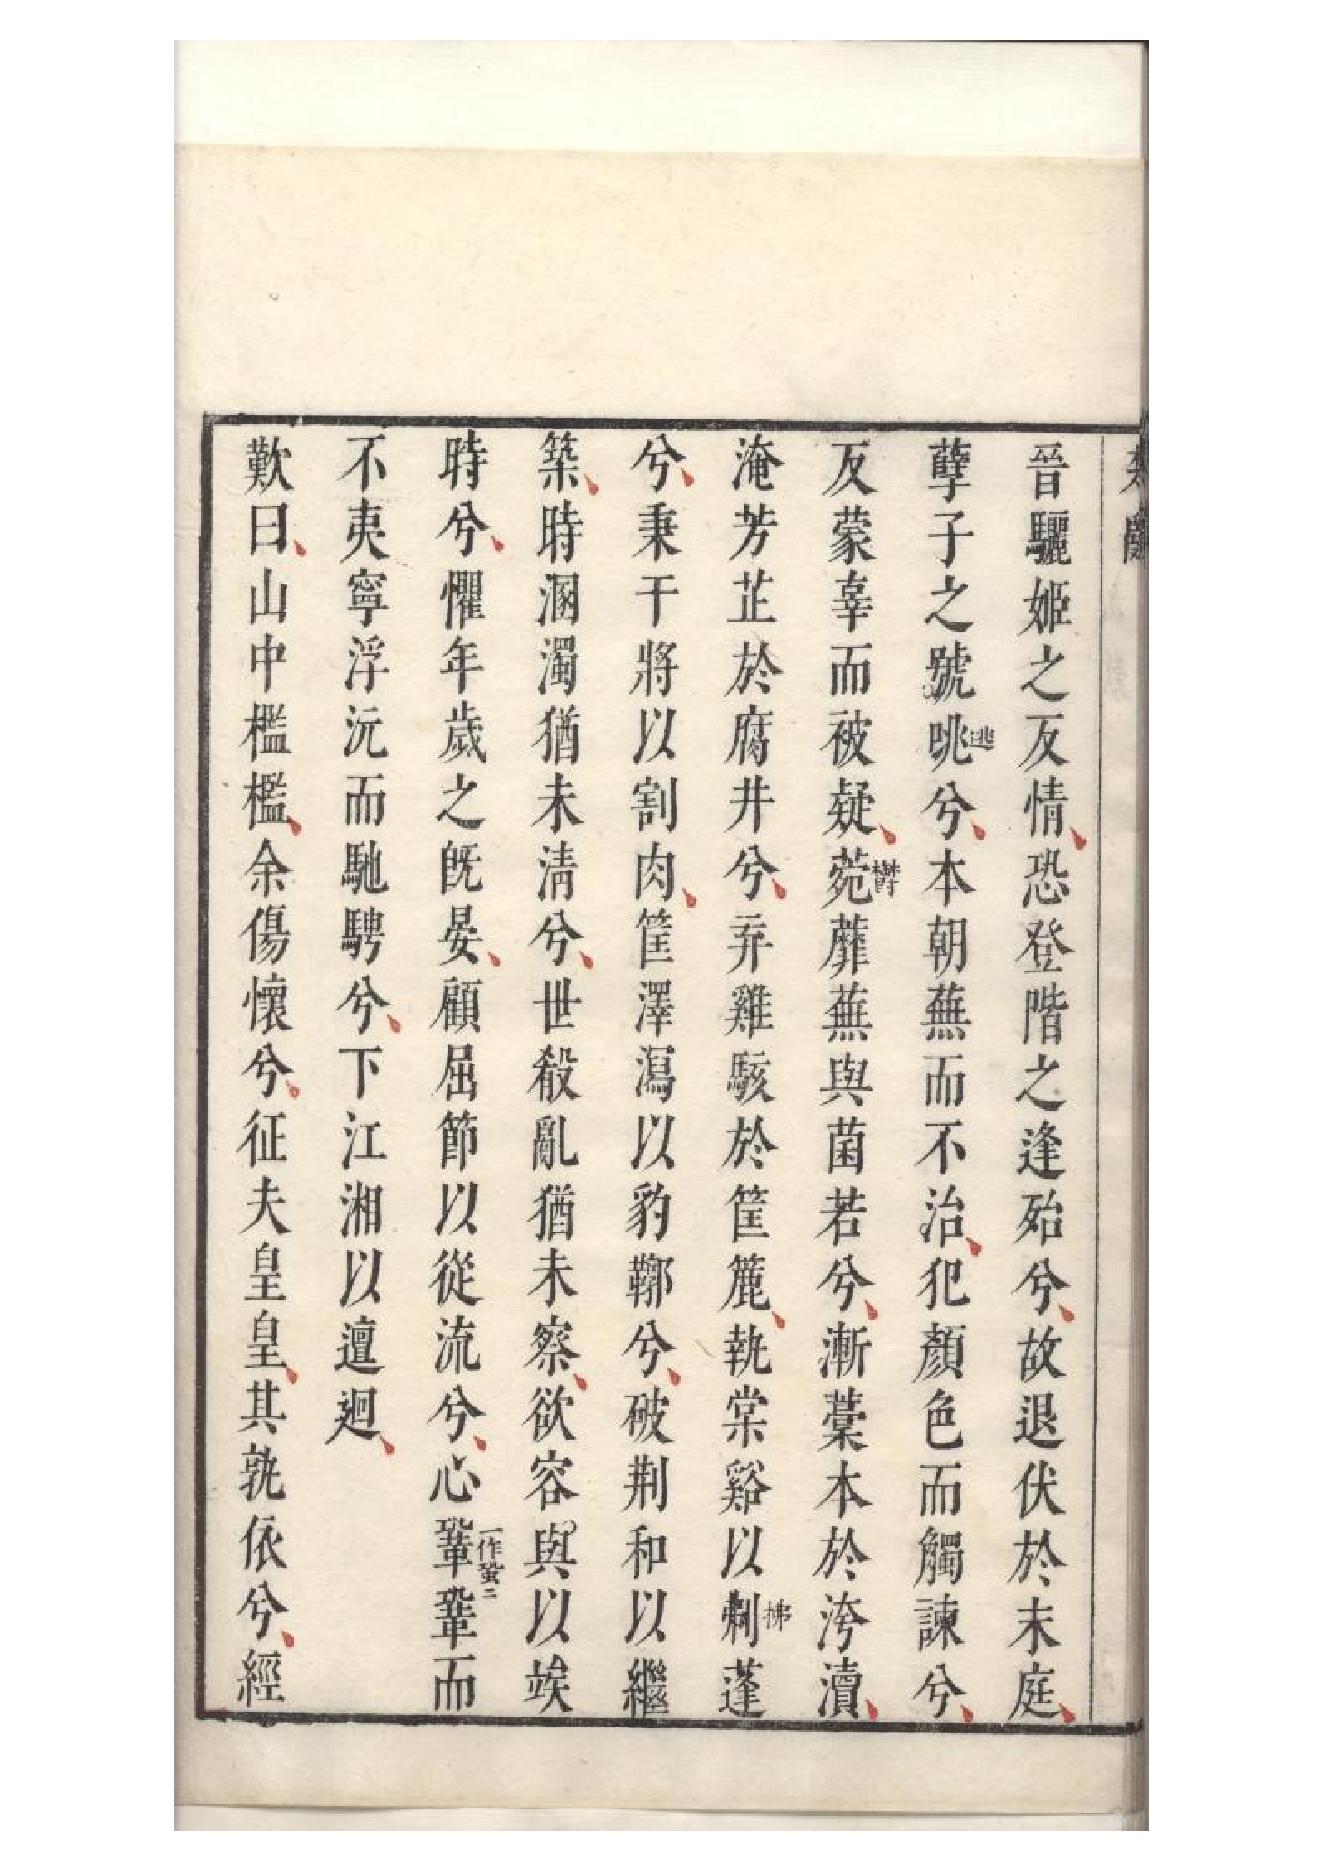 晉驪姬之反情恐登階之逢殆兮故退伏於末庭
孽子之號咷逃兮本朝蕪而不治犯顏色而觸諫兮
反蒙辜而被疑菀鬱蘼蕪與菌若兮漸藁本於洿瀆
淹芳芷於腐井兮弃雞駭於筐簏執棠谿以刜拂蓬
兮秉干將以割肉筐澤瀉以豹鞹兮破荆和以繼
築時溷濁猶未清兮世殽亂猶未察欲容與以竢
時兮懼年歲之旣晏顧屈節以從流兮心鞏一作蛩二鞏而
不夷寧浮沅而馳騁兮下江湘以邅迴
歎曰山中檻檻余傷懷兮征夫皇皇其孰依兮經